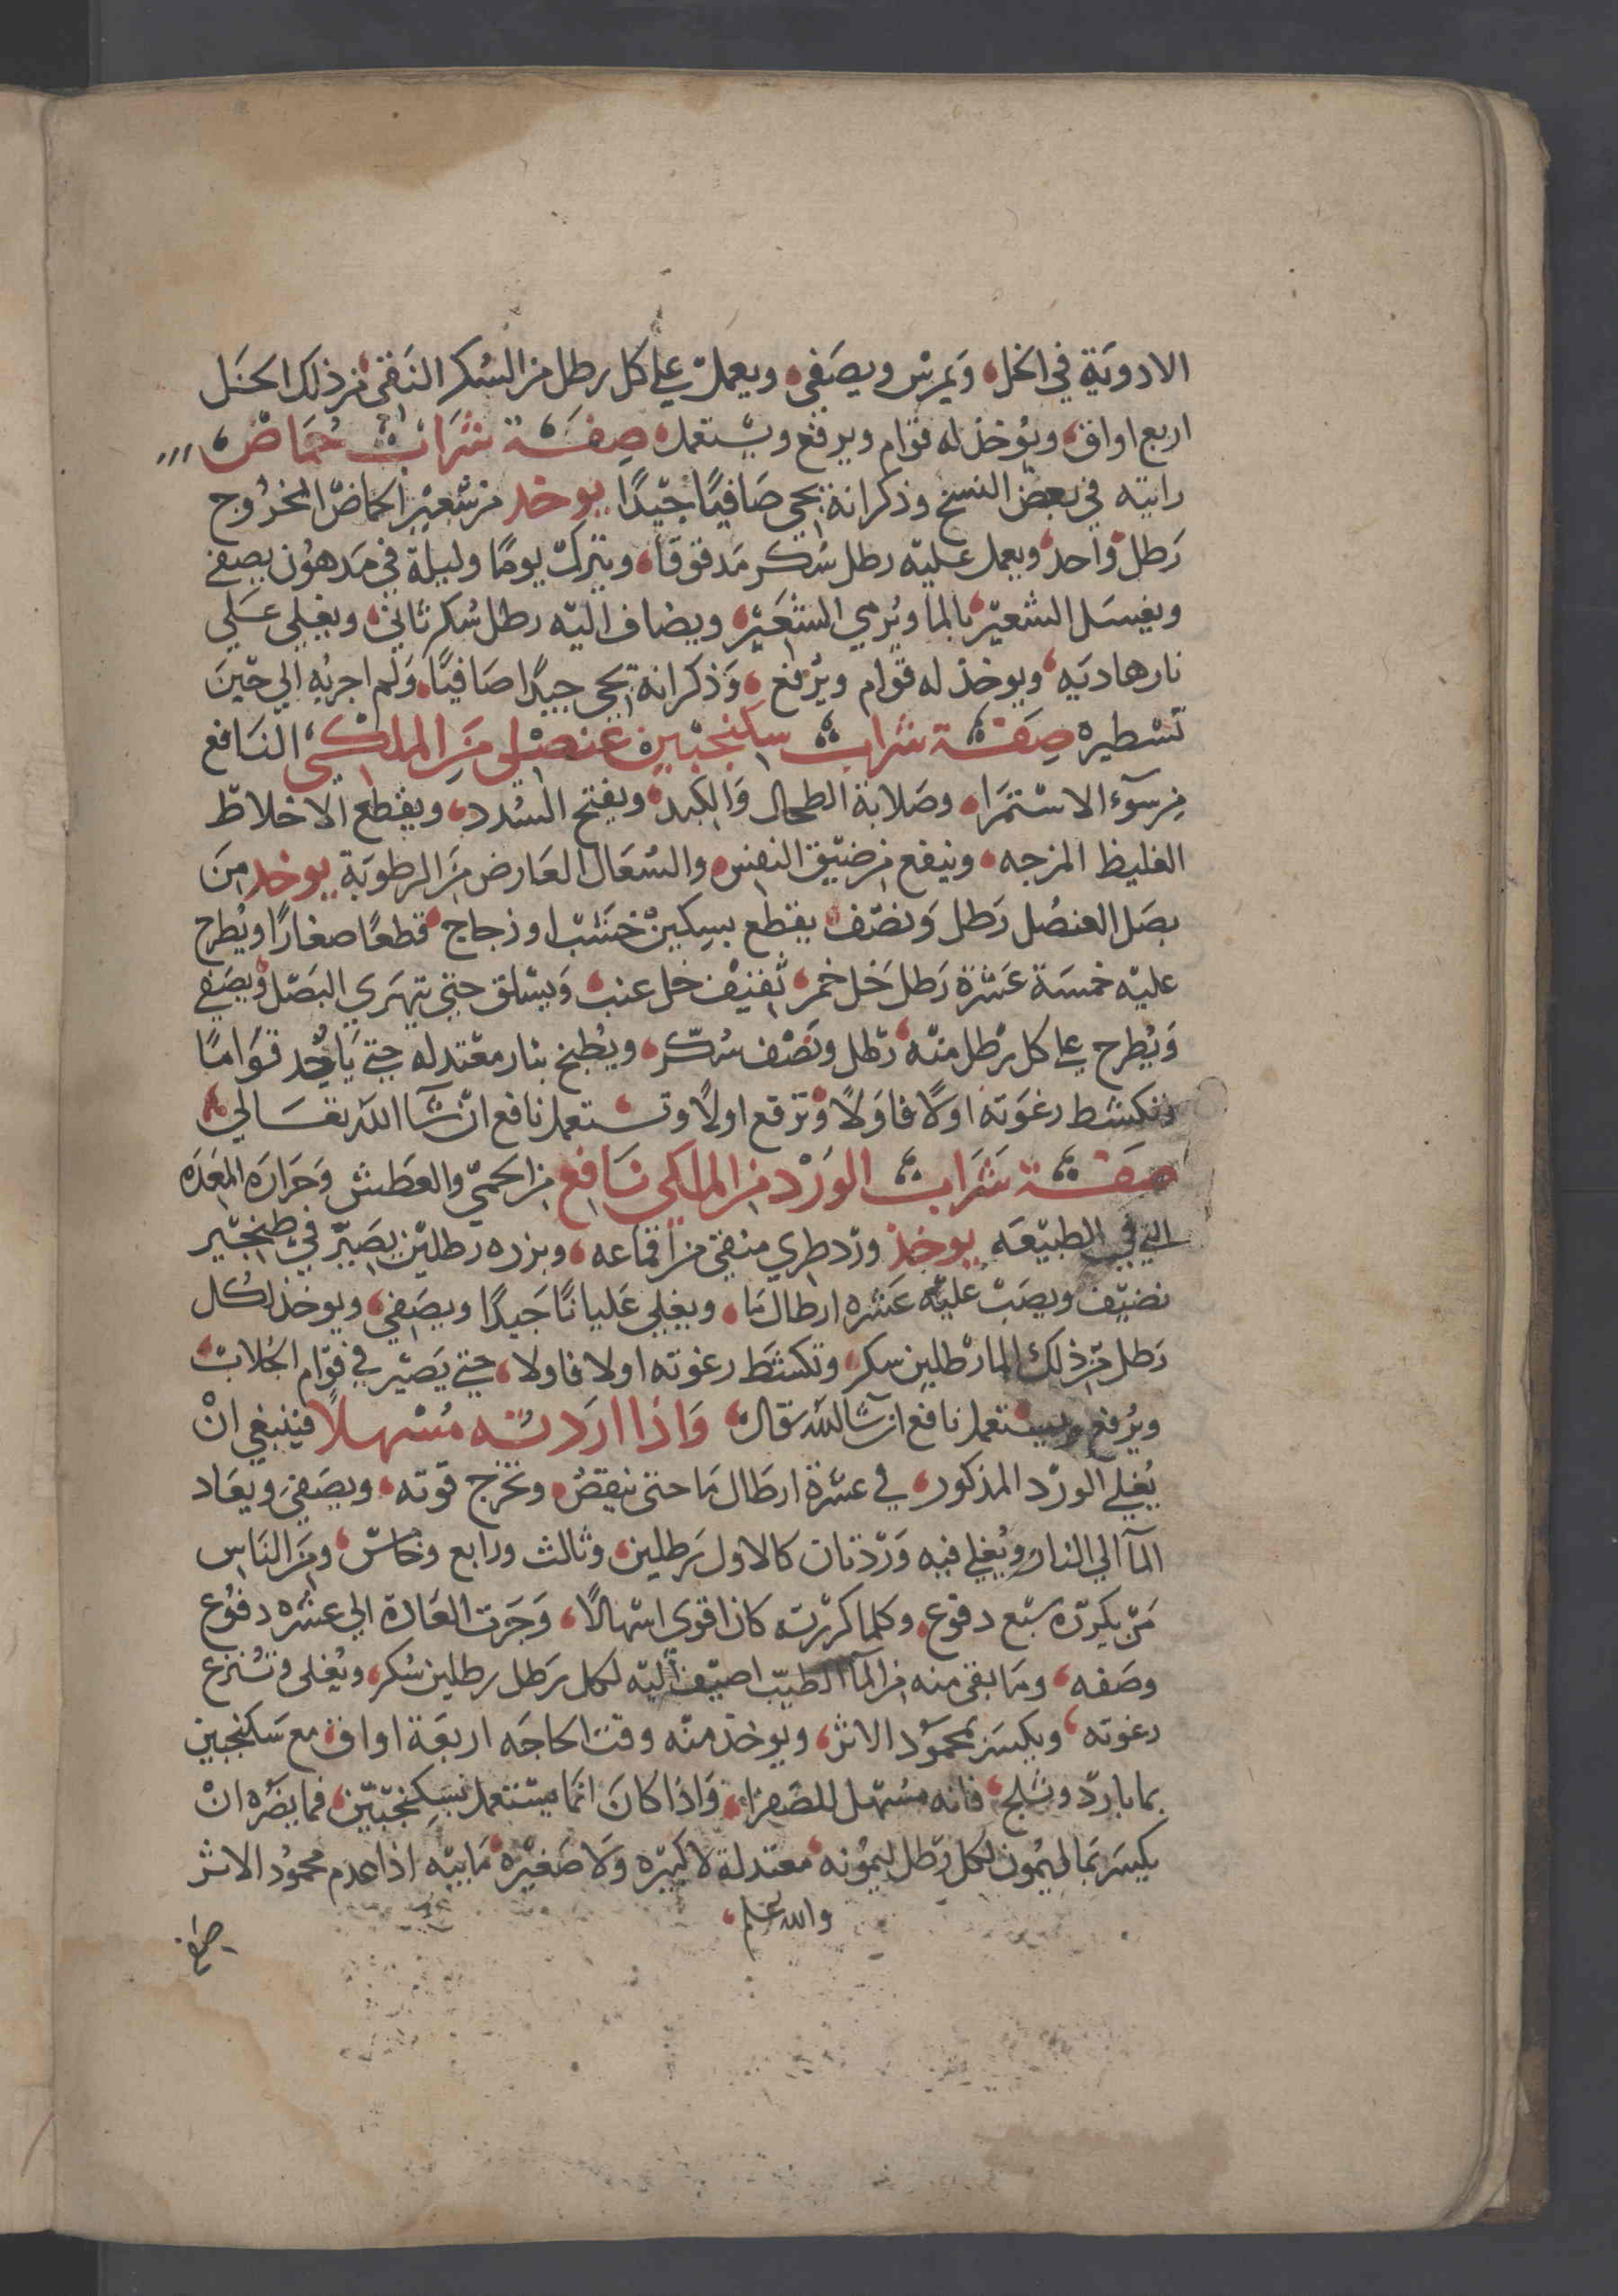 الادوية في الخل، ويمرس ويصفى، ويعمل على كل رطل من السكر النقي من ذلك الخل
اربع اواق، ويؤخذ له قوام ويرفع ويستعمل، صفة شراب حماض
رايته في بعض النسخ وذكر انه يجي صافيا جيدا يوخد من شعير الحماض المخروج
رطل واحد، ويعمل عليه رطل سكر مدقوقا، ويترك يوما وليلة في مدهون يصفى
ويغسل الشعير بالما ويرمي الشعير، ويضاف اليه رطل سكر ثاني، ويغلى على
نار هاديه، ويوخذ له قوام ويرفع، وذكر انه يجي جيدا صافيا، ولم اجربه الي حين
تسطيره صفة شراب سكنجبين عنصلي من الملكي النافع
من سوء الاستمرا، وصلابة الطحال والكبد، ويفتح السدد، ويقطع الاخلاط
الغليظ المزجه، وينفع من ضيق النفس، والسعال العارض من الرطوبة يوخد من
بصل العنصل رطل ونصف، يقطع بسكين خشب او زجاج، قطعا صغارا ويطرح
عليه خمسة عشرة رطل خل خمر، ثقيف خل عنب، ويسلق حتى يتهري البصل ويصفى
ويطرح على كل رطل منه، رطل ونصف سكر، ويطبخ بنار معتدله حتى ياخد قواما
وتكشط رغوته اولا فاولا، وترفع اولا وتستعمل نافع ان شا الله تعالي،
صفة شراب الورد من الملكي نافع من الحمي والعطش وحرارة المعده
التي في الطبيعه يوخذ ورد طري منقى من اقماعه، وبزره رطلين يصير في طنجير
نضيف ويصب عليه عشره ارطال ما، ويغلى غليانا جيدا ويصفى، ويوخذ لكل
رطل من ذلك الما رطلين سكر، وتكشط رغوته اولا فاولا، حتى يصير في قوام الجلاب،
ويرفع ويستعمل نافع ان شا الله تعالى، واذا اردته مسهلا فينبغي ان
يغلي الورد المذكور، في عشرة ارطال ما حتى ينقص، وتخرج قوته، ويصفى ويعاد
المآ الي النار ويغلى فيه ورد ثان كالاول رطلين، وثالث ورابع وخامس، ومن الناس
من يكرره سبع دفوع، وكلما كررته كان اقوى اسهالا، وجرت العادة الي عشره دفوع
وصفه، وما بقى منه من المآ الطيب اضيف اليه لكل رطل رطلين سكر، ويغلى وتنزع
رغوته، ويكسر بمحمود الاثر، ويوخذ منه وقت الحاجه اربعة اواق، مع سكنجبين
بما بارد وثلج، فانه مسهل للصفرا، واذا كان انما يستعمل بسكنجبين، فما يضره ان
يكسر بما ليمون لكل رطل ليمونه، معتدلة لا كبيره ولا صغيره، مابيه اذا عدم محمود الاثر
والله اعلم،